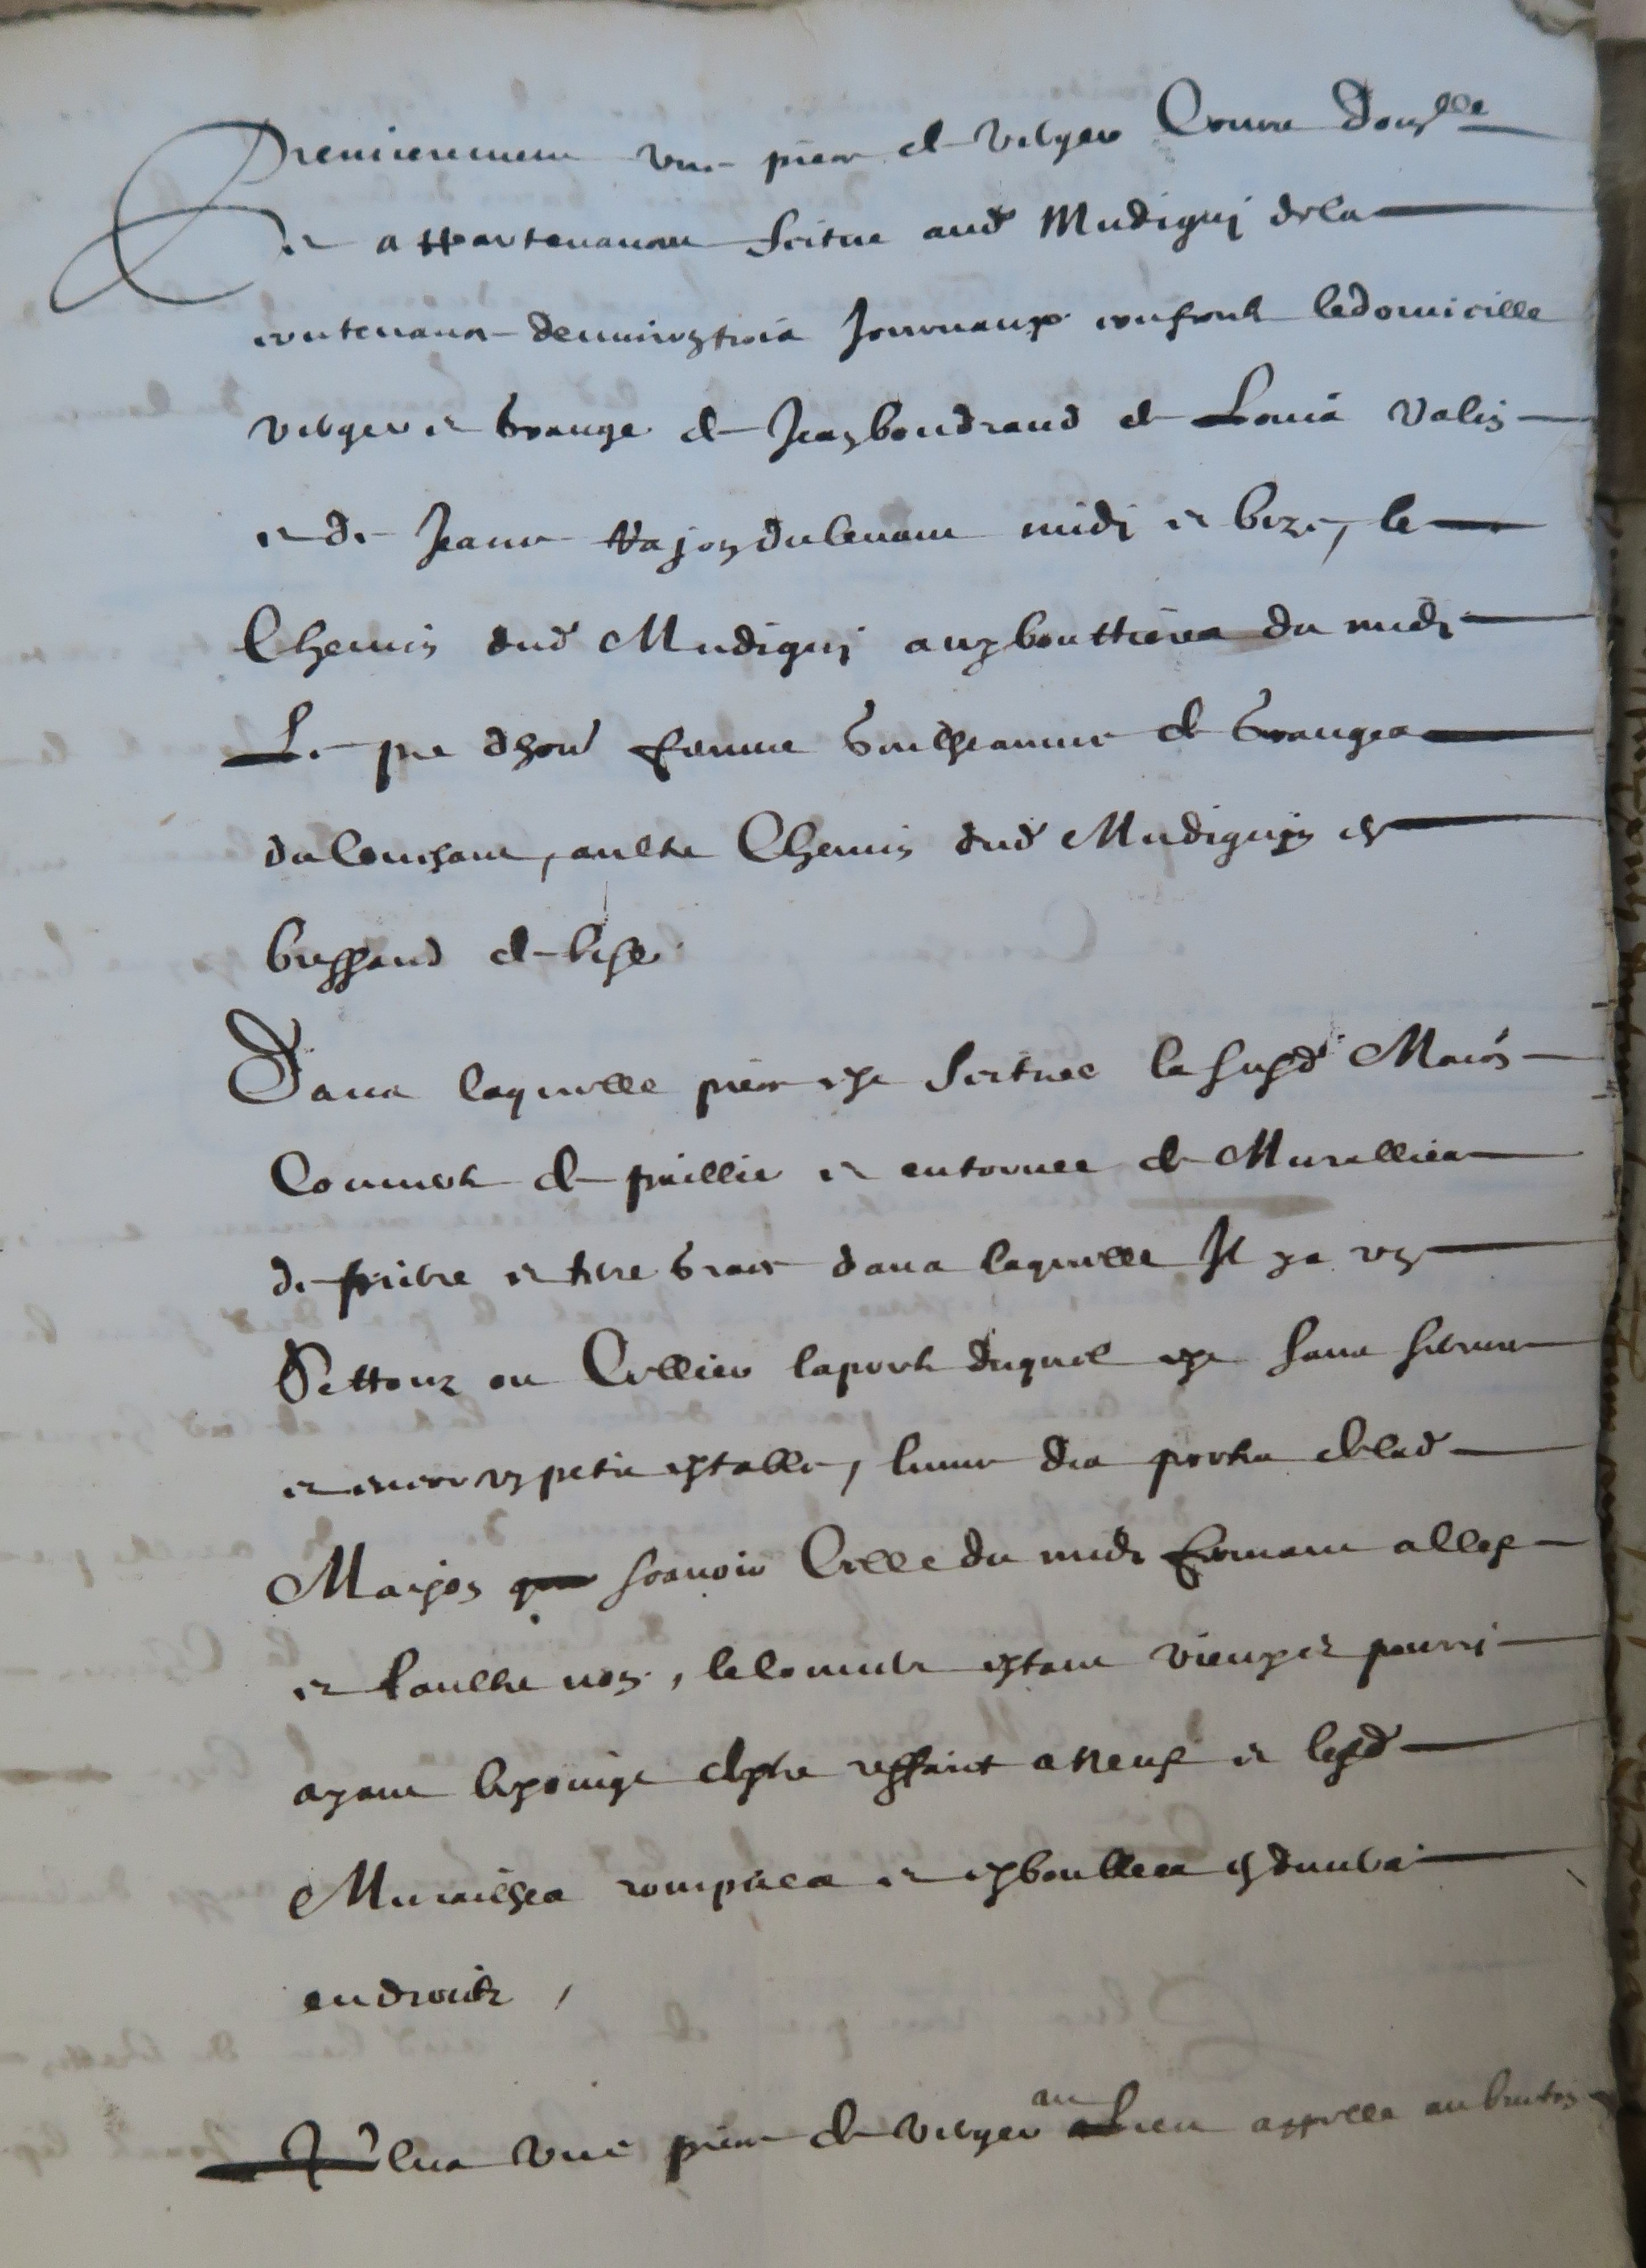 Premierement une piece de verger Couvr Dous<sup>lle</sup>
et appartenance scitue aud Mudigui dela
contenant denviron trois Journaux confront le domicille
verger et Grange de Jean boudrand et Louis Valin
et de Jeanne Vajon du levant midi et bize, le
Chemin dud Mudigui aux bouttieres du midi
Le pre dhon Guilheaume de Granges
du couchant, aultre Chemin dud Mudiguy et
bressand de bise
Dans laquelle piece est scituee la susd Maison
Couverte de paillie et entournee de Murallies
de pierre et terre Grasse dans laquelle Il ya un
Settour ou Cellier la porte duquel est sans serrure
et encor un petit estable, lune des portes de lad
Maison scavoir Celle du midi fermant a clef
et laultre non, le couvert estant vieux et pourri
ayant besoing destre reffaict a neuf et lesd
Murailhes rompues et esboullees en divers
endroits,
Plus une piece de verger au Lieu appelle au bruton